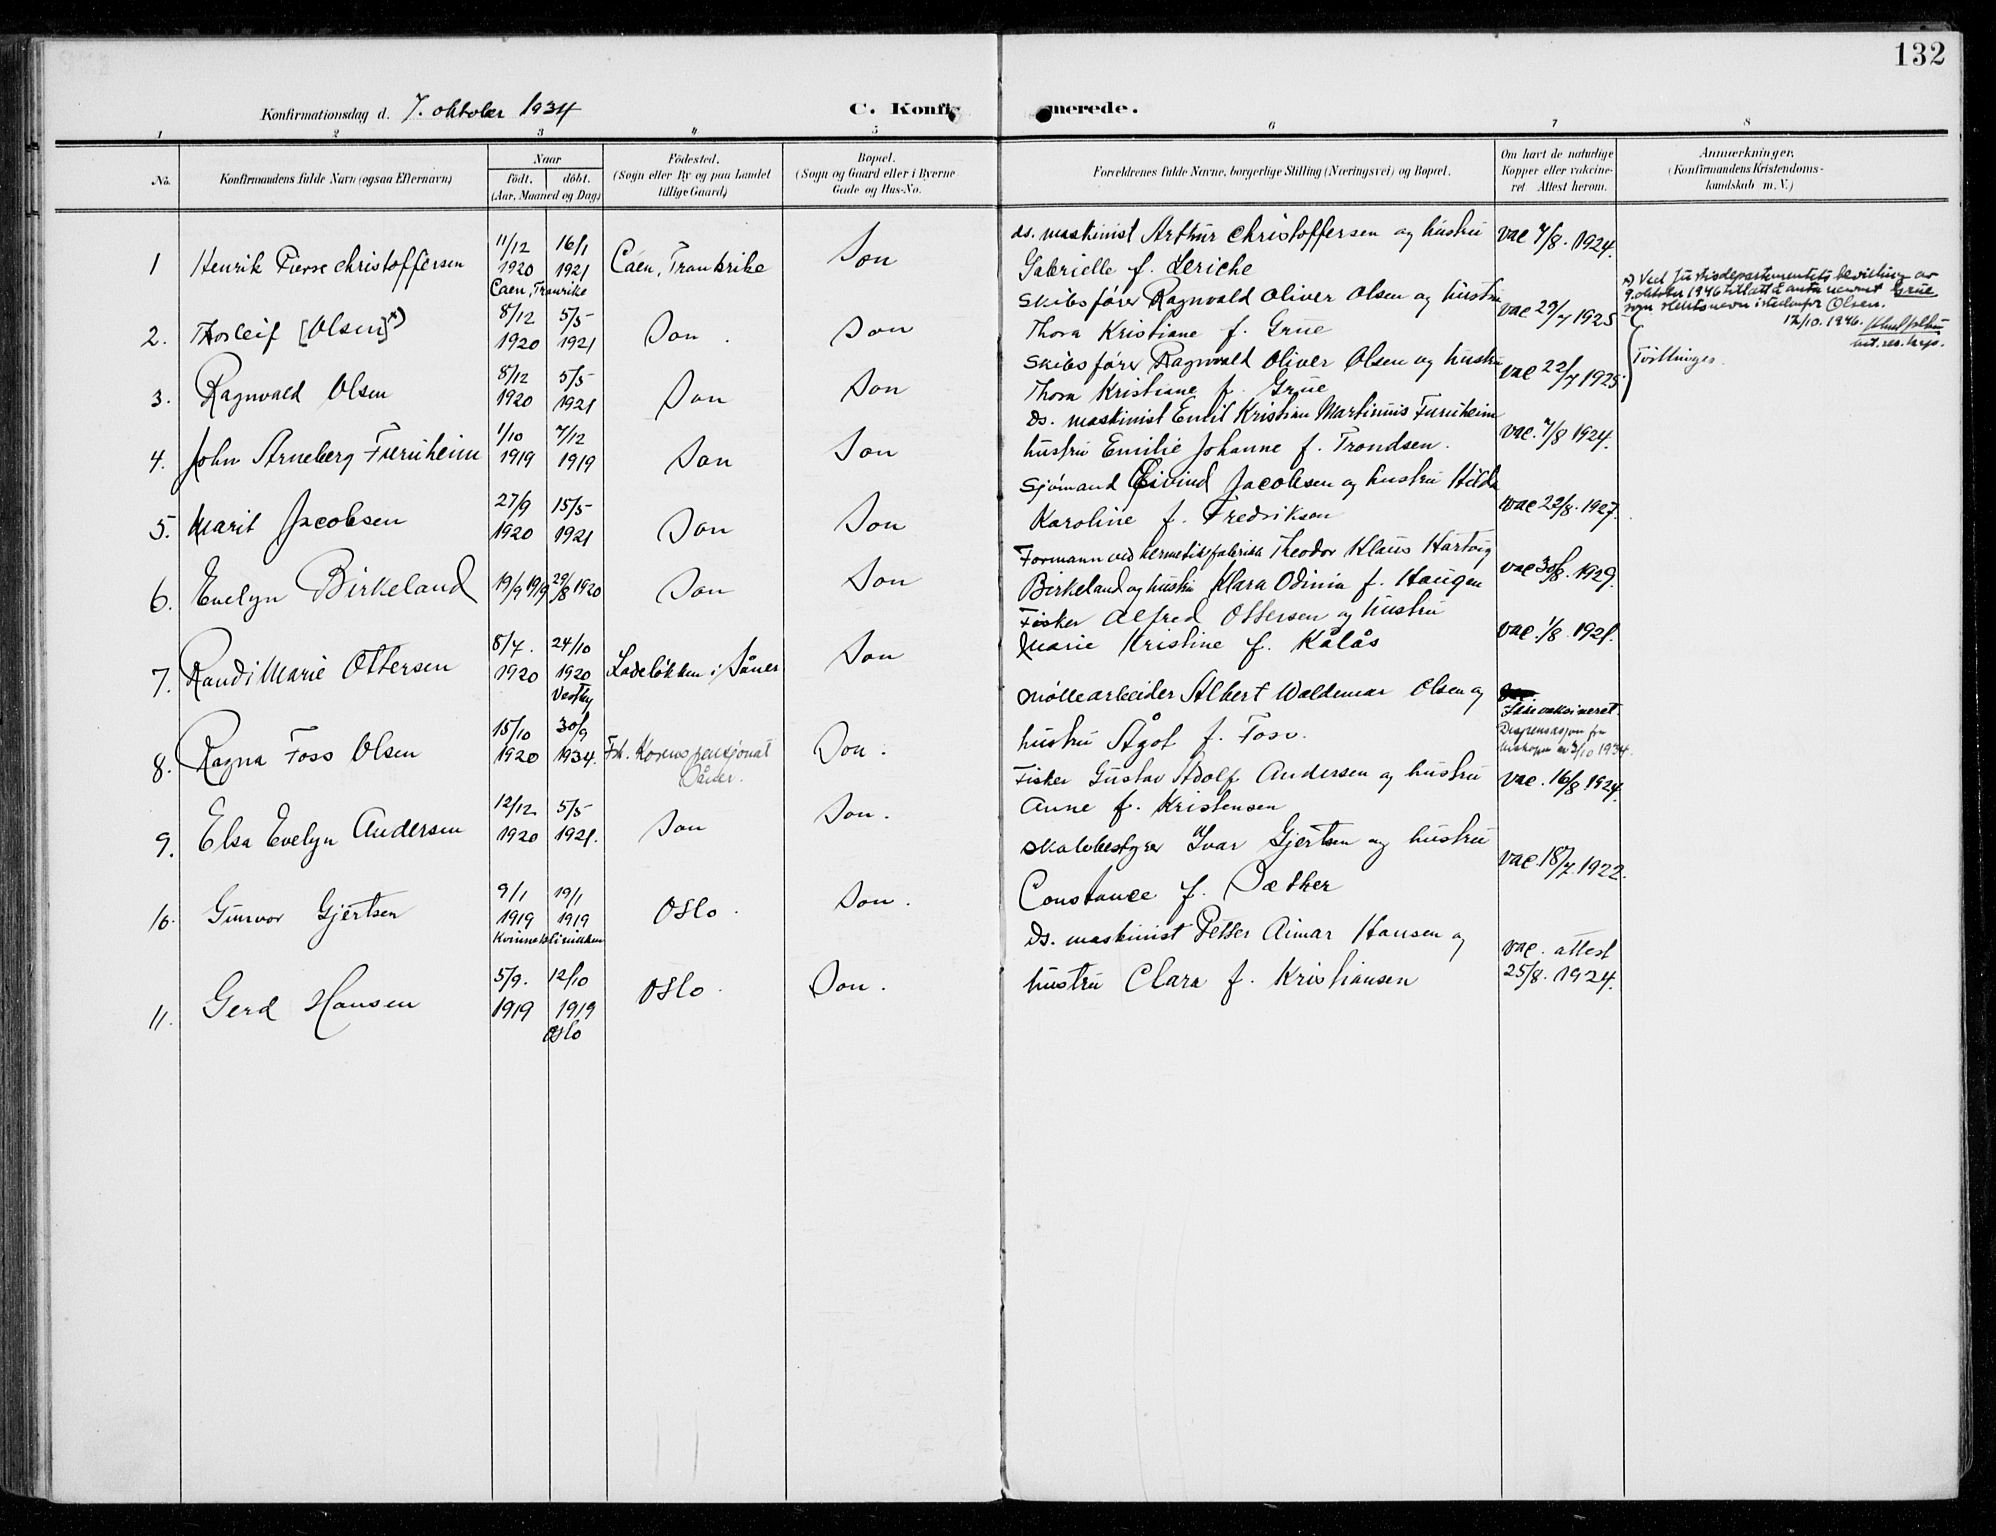 132
Konfirmationsdag d. 7. oktober 1934
C. Konfirmerede.
1 2 3 4 5 6 7 8
No.
Konfirmandens fulde Navn (ogsaa Efternavn)
Naar
født. døbt.
(Aar, Maaned og Dag)
Fødested.
(Sogn eller By og paa Landet
tillige Gaard)
Bopæl.
(Sogn og Gaard eller i Byerne
Gade og Hus-No.
Forældrenes fulde Navne, borgerlige Stilling (Næringsvei) og Bopæl.
Om havt de naturlige
Kopper eller vakcine-
ret Attest herom.
Anmærkninger.
(Konfirmandens Kristendoms-
kundskab m. V.)
1 Henrik Pierre Christoffersen 11/12 1920 16/1 1921 Caen, Frankrike Son
Caen, Frankrike
ds. maskinist Arthur Christoffersen og hustru
Gabrielle f. Leriche
vac 7/8. 1924.
2. Thorleif [Olsen] x) 8/12 1920 5/5 1921 Son. Son
Skibsfører Ragnvald Oliver Olsen og hustru
Thora Kristiane f. Grue
vac 22/7 1925
x) Ved Justisdepartementets bevilling av
9. oktober 1946 tillatt å anta navnet Grue
som slektsnavn istedenfor Olsen.
12/10. 1946.
Tvillinger.
3. Ragnvald Olsen 8/12 1920 5/5 1921 Son Son
Skibsfører Ragnvald Oliver Olsen og hustru
Thora Kristiane f. Grue
vac 22/7 1925.
4. John Arneberg Furuheim 1/10 1919 7/12 1919 Son Son
Ds. maskinist Emil Kristian Martinius Furuheim
hustru Emilie Johanne f. Trondsen.
vac. 7/8 1924.
5. Marit Jacobsen 27/9 1920 15/5 1921 Son Son
Sjömand Eivind Jacobsen og hustru Hilda
Karoline f. Fredriksen
vac 22/8. 1927.
6. Evelyn Birkeland 19/9 1919 29/8 1920 Son Son
Formann ved hermetikfabrikk Theodor Klaus Hartvig
Birkeland og hustru Klara Odinia f. Haugen
vac 30/8. 1929.
7. Randi Marie Ottersen 8/7. 1920 24/10 1920 Ladeløkken i Såner Son
Vestby
Fisker Alfred Ottersen og hustru
Marie Kristine f. Kålås
vac. 1/8. 1921.
8. Ragna Foss Olsen 15/10 1920 30/9 1934. Frk. Korens pensjonat Son.
Såner.
Møllearbeider Albert Waldemar Olsen og
hustru Ågot f. Foss.
Ikke vaksineret.
Dispensasjon fra
biskopen av 3/10 1934.
9. Elsa Evelyn Andersen 12/12 1920 5/5 1921. Son Son.
Fisker Gustav Adolf Andersen og hustru
Anne f. Kristensen
vac. 16/8 1924.
10. Gunvor Gjertsen 9/1 1919 19/1 1919 Oslo. Son.
Kvinneklinikken
Skolebestyrer Ivar Gjertsen og hustru
Constance f. Sæther
vac. 18/7 1922.
11. Gerd Hansen 5/9. 1919 12/10 1919 Oslo. Son.
Oslo
Ds. maskinist Petter Aimar Hansen og
hustru Clara f. Kristiansen
vac. attest
25/8. 1924.